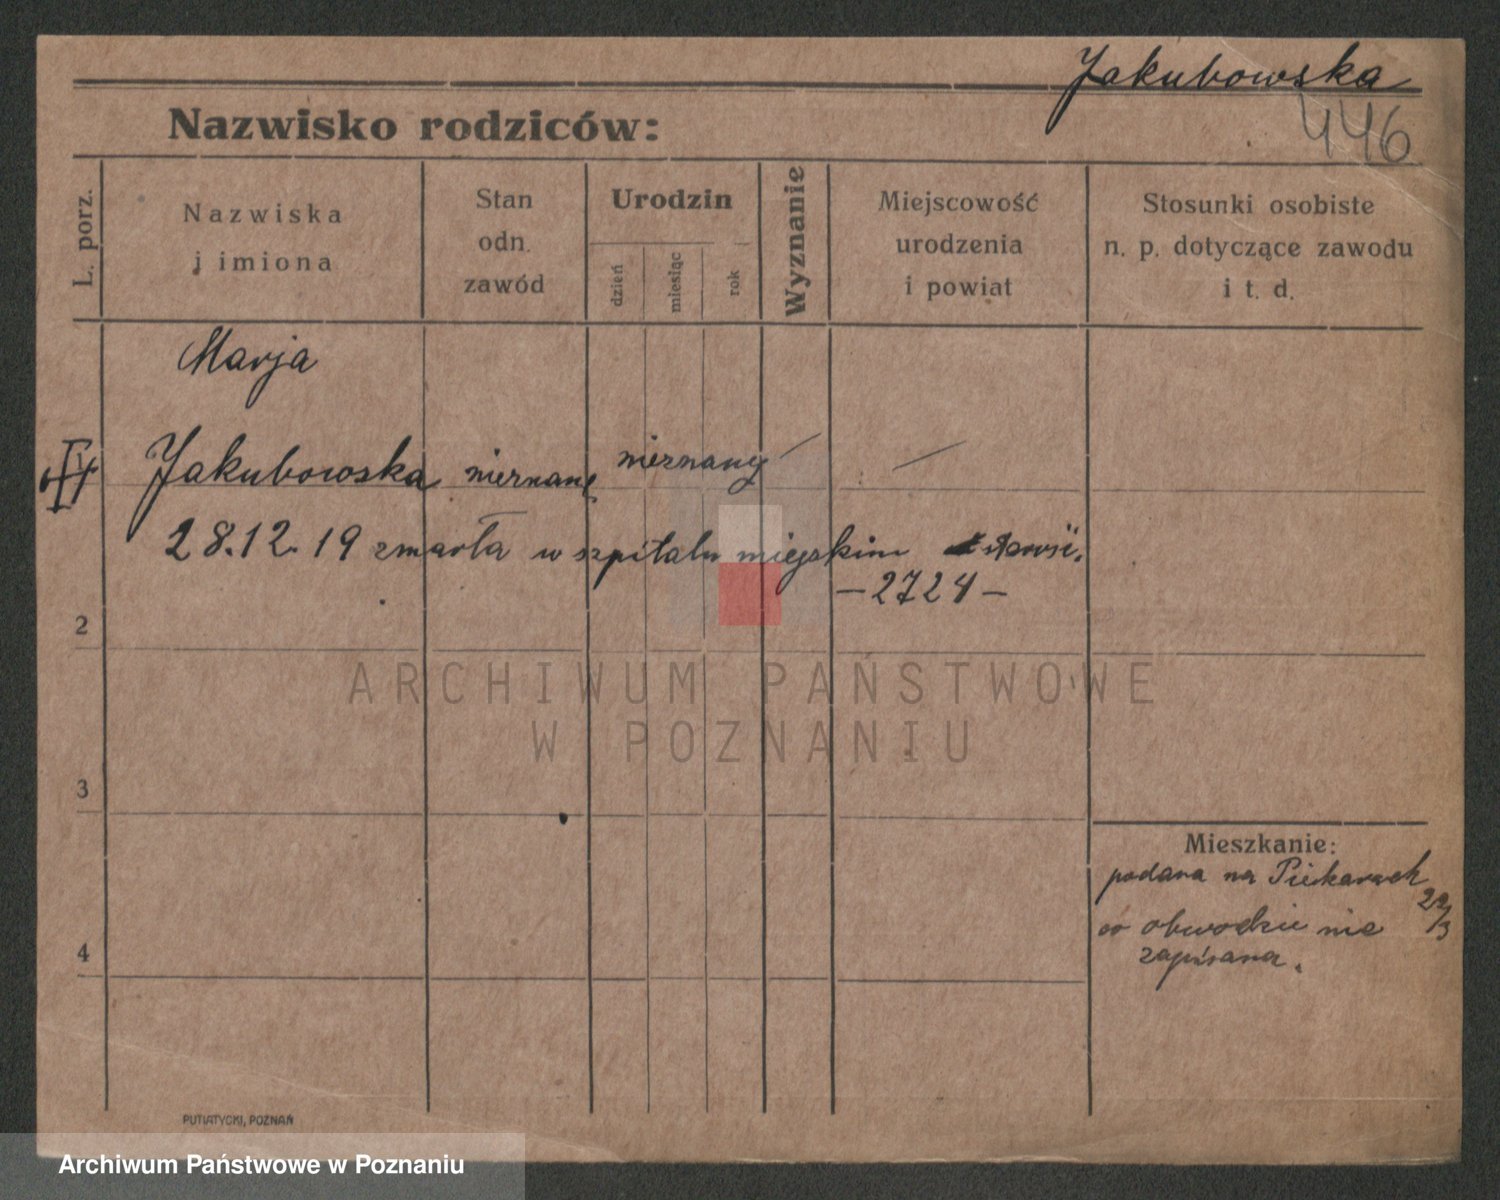 Jakubowska
446
Nazwisko rodziców:
L. porz.
Nazwiska
i imiona
Stan
odn.
zawód
Urodzin
dzień
miesiąc
rok
Wyznanie
Miejscowość
urodzenia
i powiat
Stosunki osobiste
n. p. dotyczące zawodu
i t. d.
Marja
Jakubowska nieznany nieznany
28.12.19 zmarła w szpitalu miejskim
—2724—
2
3
4
ARCHIWUM PAŃSTWOWE
W POZNANIU
Mieszkanie:
podana na Piekarach
22/3
w obwodzie nie
zapisana.
PUTIATYCKI, POZNAŃ
Archiwum Państwowe w Poznaniu